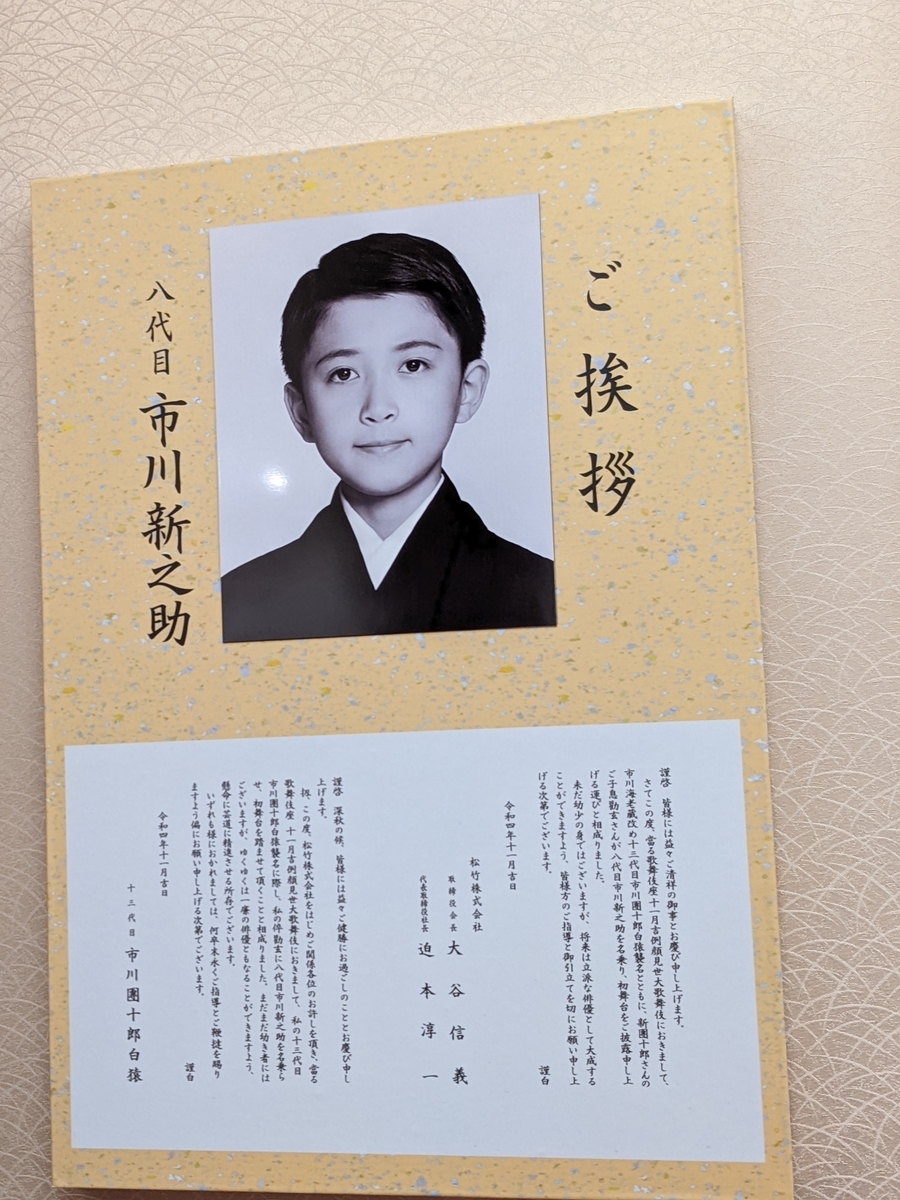 ご挨拶
八代目 市川新之助
謹啓 皆様には益々ご清祥の御事とお慶び申し上げます。
さてこの度、當る歌舞伎座十一月吉例顔見世大歌舞伎におきまして、
市川海老蔵改め十三代目市川團十郎白猿襲名とともに、新團十郎さんの
ご子息勸玄さんが八代目市川新之助を名乗り、初舞台をご披露申し上
げる運びと相成りました。
未だ幼少の身ではございますが、将来は立派な俳優として大成する
ことができますよう、皆様方のご指導と御引立てを切にお願い申し上
げる次第でございます。
謹白
令和四年十一月吉日
松竹株式会社
取締役会長 大谷信義
代表取締役社長 迫本淳一
謹啓 深秋の候、皆様には益々ご健勝にお過ごしのこととお慶び申し
上げます。
扨、この度、松竹株式会社をはじめご関係各位のお許しを頂き、當る
歌舞伎座 十一月吉例顔見世大歌舞伎におきまして、私の十三代目
市川團十郎白猿襲名に際し、私の倅勸玄に八代目市川新之助を名乗ら
せ、初舞台を踏ませて頂くことと相成りました。まだまだ幼き者には
ございますが、ゆくゆくは一廉の俳優ともなることができますよう、
懸命に芸道に精進させる所存でございます。
いずれも様におかれましては、何卒末永くご指導とご鞭撻を賜り
ますよう偏にお願い申し上げる次第でございます。
謹白
令和四年十一月吉日
十三代目 市川團十郎白猿